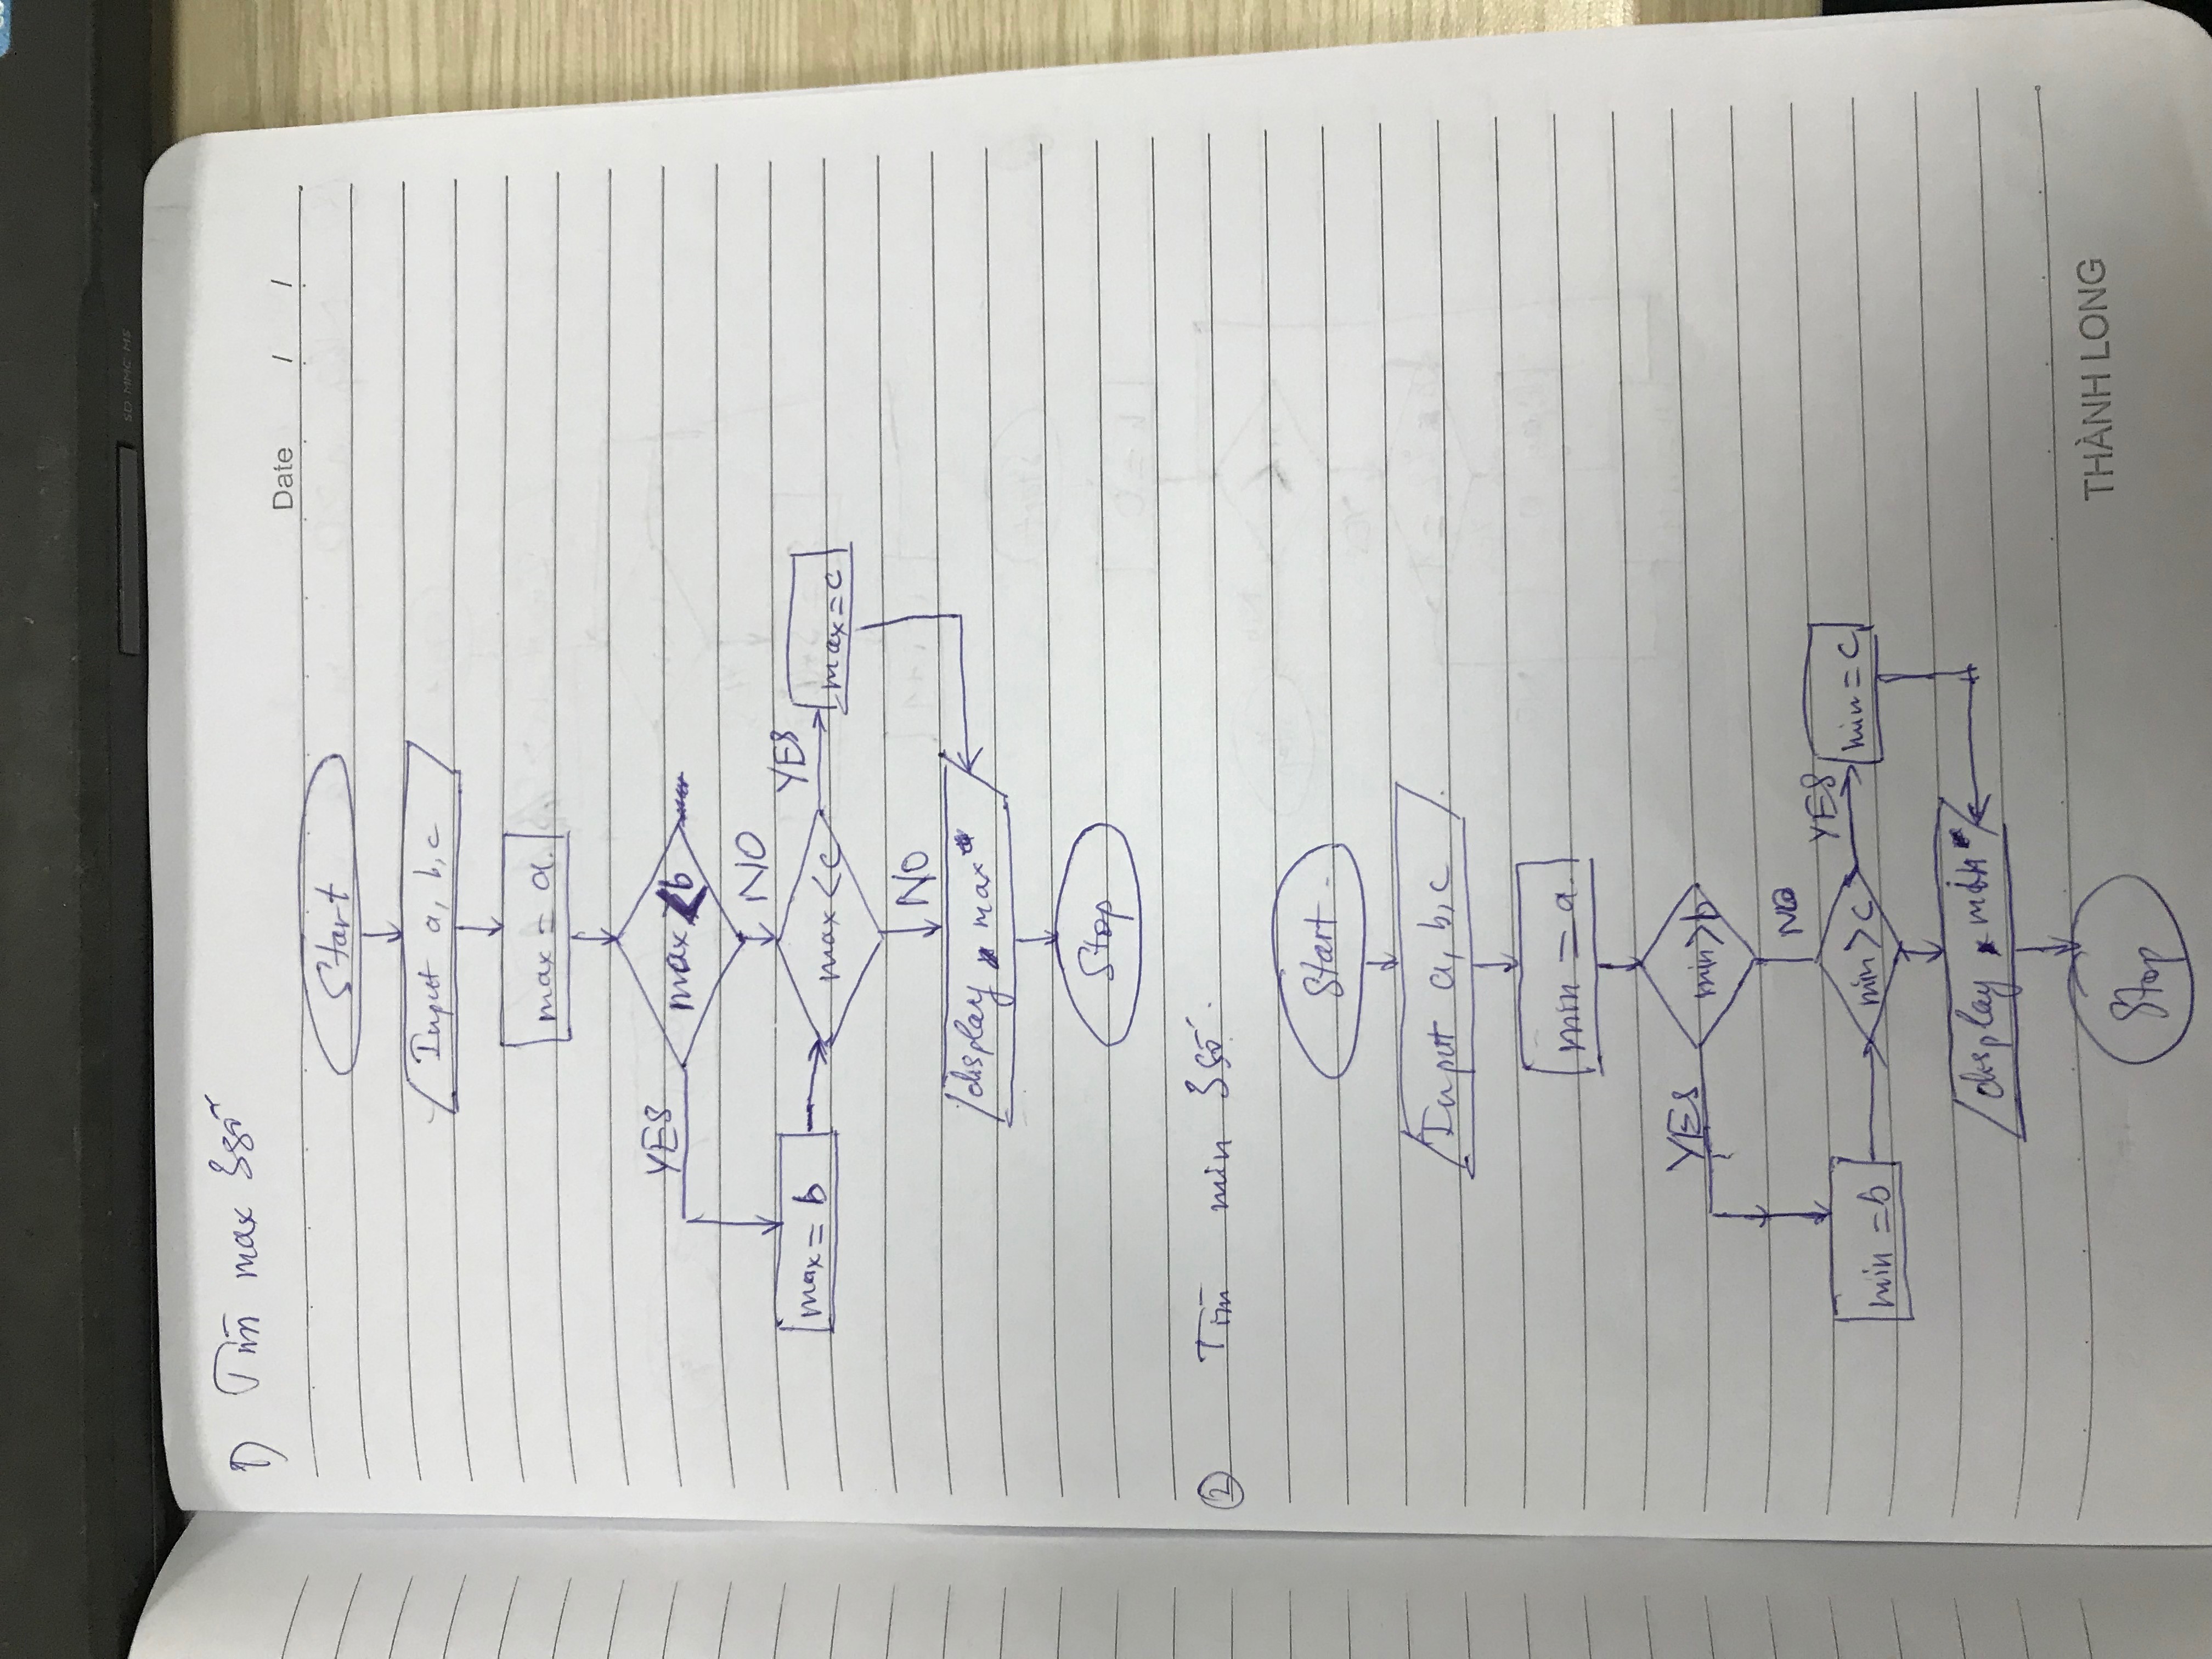 SD·MMC·MS
1) Tìm max 3 số
Date / /
Start
Input a, b, c
max = a.
YES
max < b
NO
YES
max = b
max < c
max = c
NO
display max
Stop
2 Tìm min 3 số.
Start
Input a, b, c
min = a.
YES
min > b
NO
YES
min = b
min > c
min = c
display min
Stop
THÀNH LONG